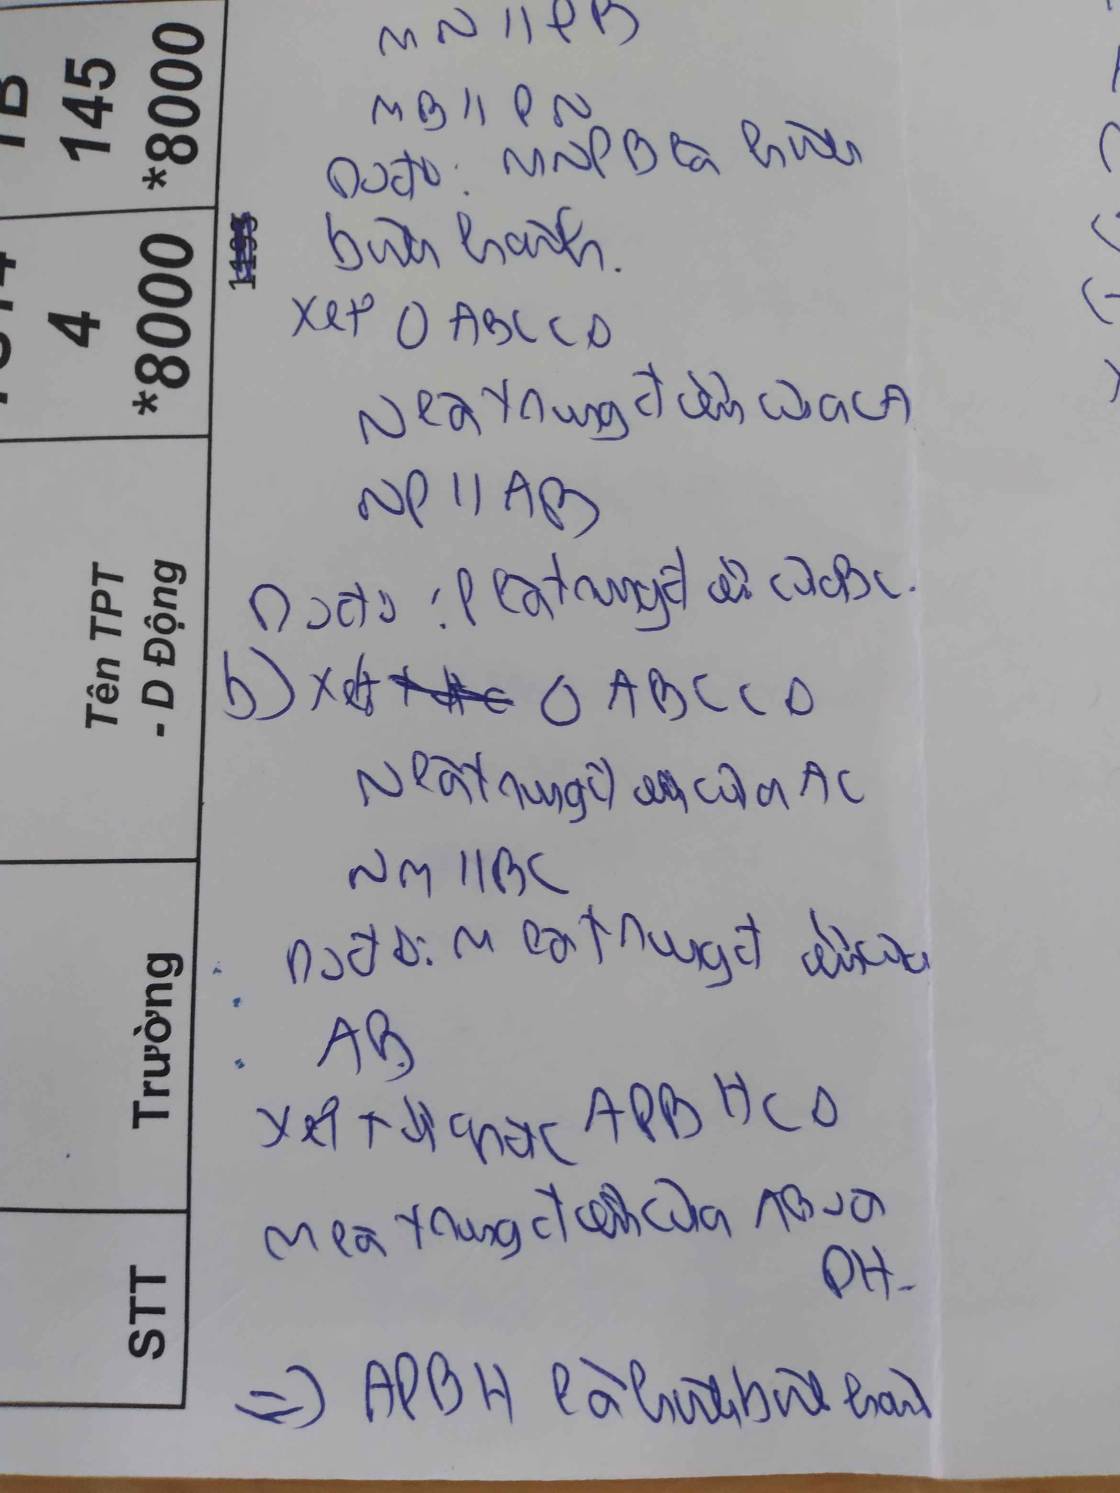 MN // PB
MB // PN
Do đó: MNPB là hình
bình hành.
Xét Δ ABC có
N là trung điểm của CA
NP // AB
Do đó: P là trung điểm của BC.
b) Xét Δ ABC có
N là trung điểm của AC
NM // BC
Do đó: M là trung điểm của
AB
Xét tứ giác APBH có
M là trung điểm của AB và
PH.
=) APBH là hình bình hành
1B
145
*8000
4
*8000
1193
Tên TPT
- D Động
Trường
STT